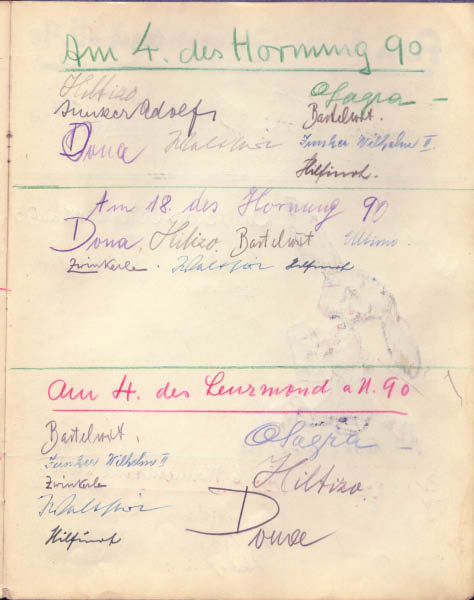 Am 4. des Hornung 90
Hiltizo
Osagra –
Junker Adolf
Bartelwirt.
Dona
Junker Wilhelm II.
Hilfinot.
Am 18. des Hornung 90
Dona, Hiltizo, Bartelwirt Ultimo.
Zwinkerle. Hilfinot
Am 4. des Lenzmond a.U. 90
Bartelwirt.
Osagra –
Junker Wilhelm II
Zwinkerle
Hiltizo
Hilfinot
Dona